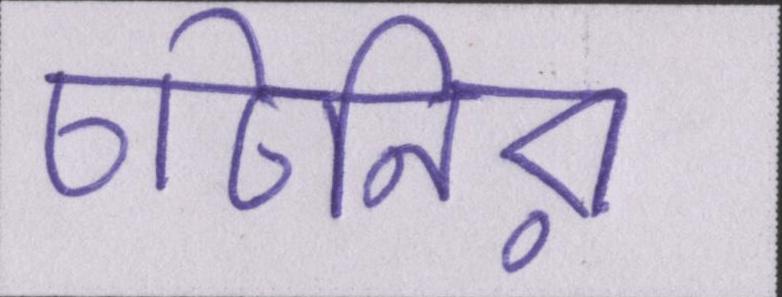 চাটনির